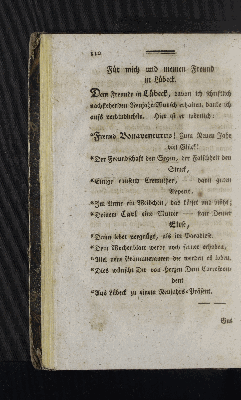 110
Für mich und meinen Freund
in Lübeck.
Dem Freunde in Lübeck, davon ich schriftlich
nachstehenden Neujahr-Wunsch erhalten, danke ich
aufs verbindlichste. Hier ist er wörtlich:
Freund Bonaventurus! Zum Neuen Jahr
viel Glück!
*Der Freundschaft den Segen, der Falschheit den
Strick,
*Einige tausend Creuzüher, dann guten
Appetit,
*Im Arme ein Mädchen, das küsset und
*Deinem Carl eine Mutter — statt Deiner
Eine,
*Denn lebet vergnügt, als im Paradiese.
*Dem Wochenblatt werde noch ferner erhoben,
*Mit vielen Pränumeranten die werden es loben.
*Dies wünscht Dir von Herzen Dein Correspon-
dent
*Aus Lübeck zu einem Neujahrs-Präsent.
Gut